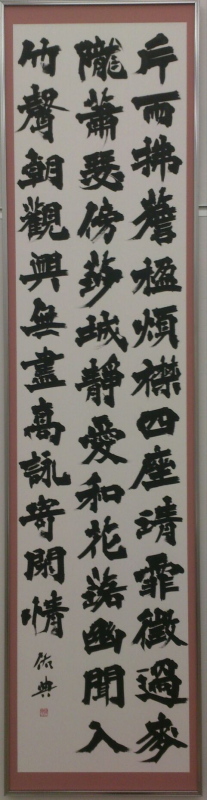 片雨拂簷楹煩襟四座清霏微過麥
隴蕭瑟傍莎城靜愛和花落幽聞入
竹聲朝觀興無盡高詠寄閑情 佑典